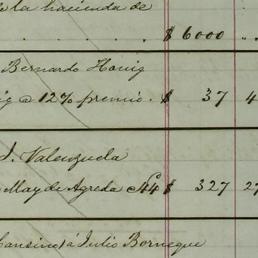 de la hacienda de
$ 6000 ..
Bernardo Honig
@ 12% premio. $ 37 4
J. Valenzuela
May de Agreda $ 327 27
Cansino á Julio Borneque